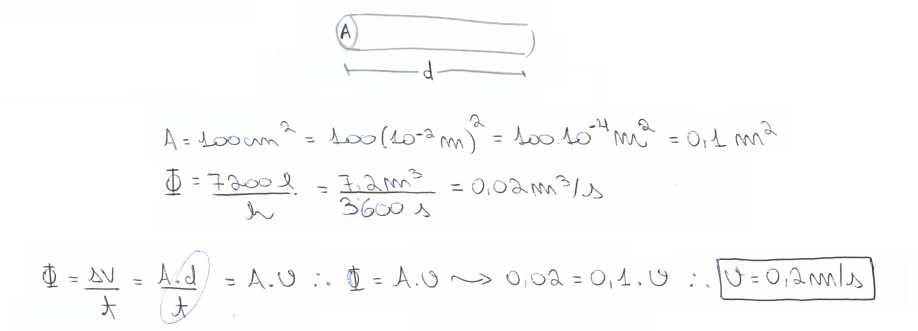 A
d
A = 100cm² = 100(10⁻²m)² = 100.10⁻⁴m² = 0,1 m²
Φ = 7200l/h = 7,2m³/3600s = 0,02m³/s
Φ = ΔV/t = A.d/t = A.v ∴ Φ = A.v ⤳ 0,02 = 0,1.v ∴ v = 0,2m/s